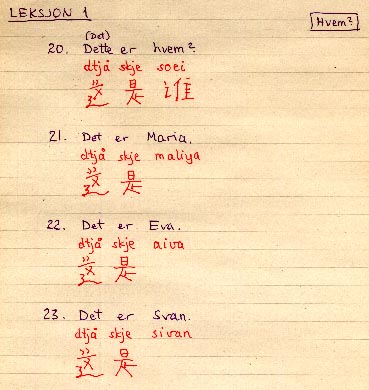 LEKSJON 1
Hvem?
(Det)
20. Dette er hvem?
dtjå skje soei
这 是 谁
21. Det er Maria.
dtjå skje maliya
这 是
22. Det er Eva.
dtjå skje aiva
这 是
23. Det er Svan.
dtjå skje sivan
这 是